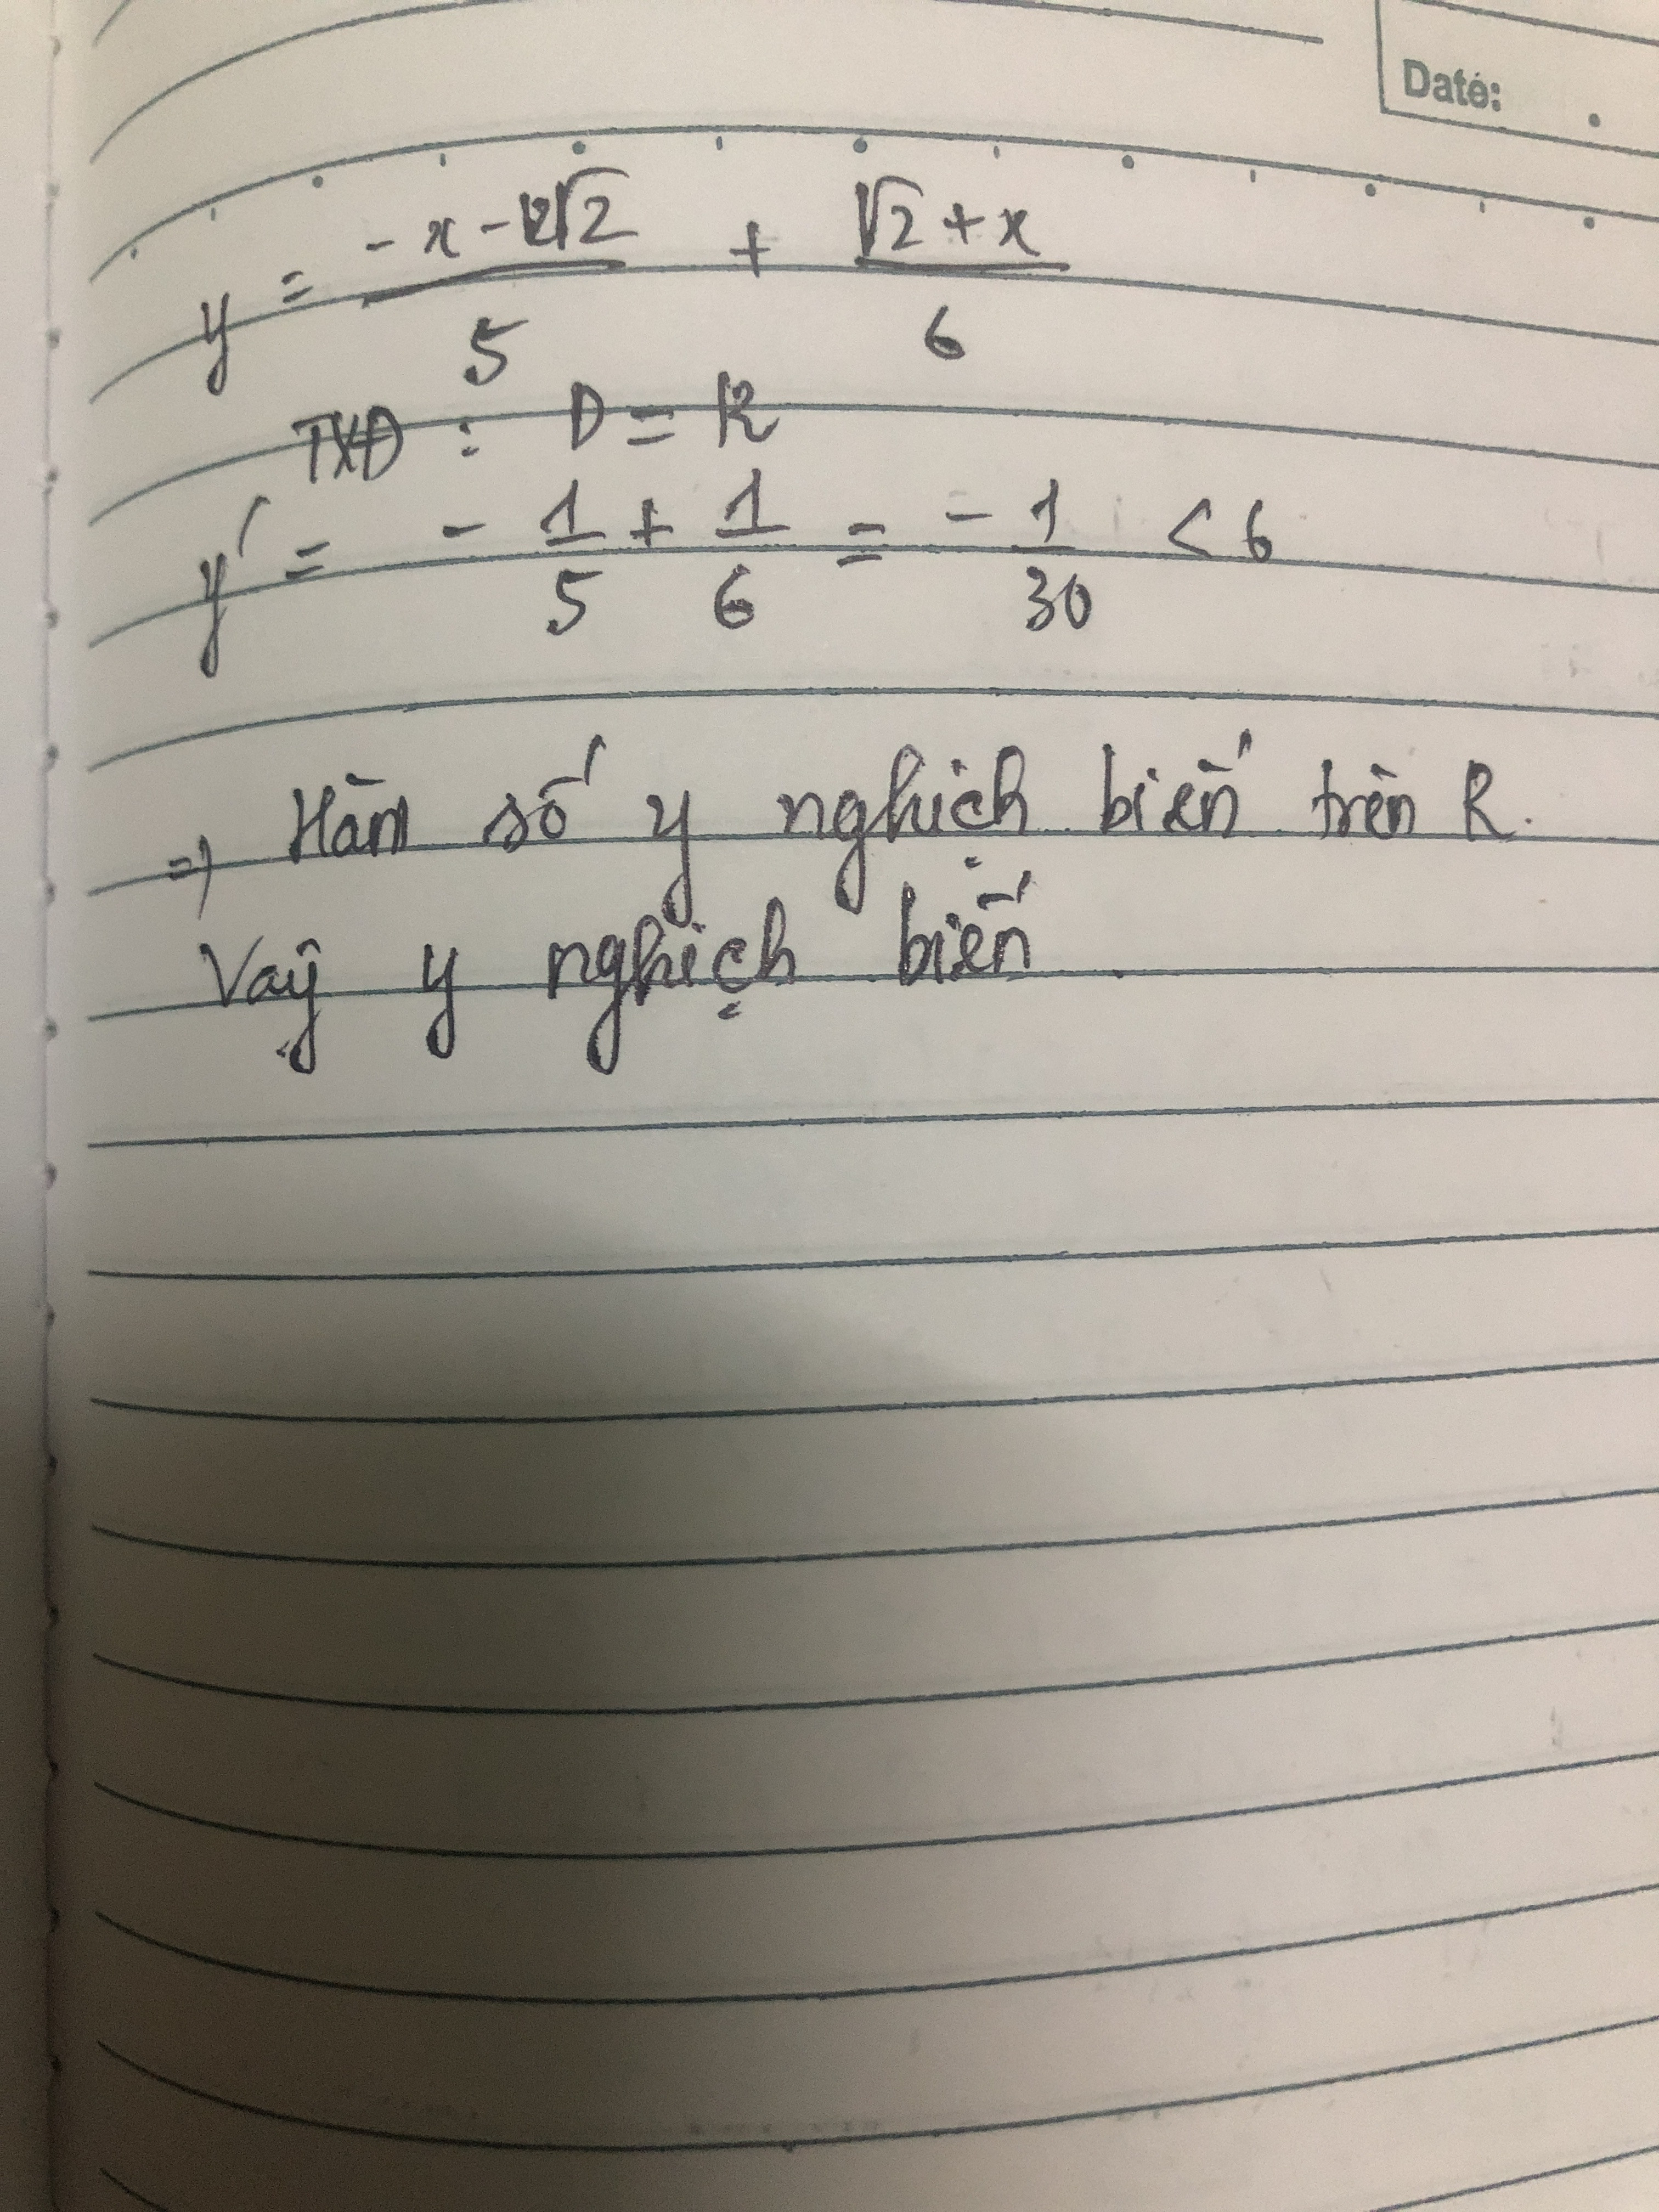 Date:
y = (-x - 2√2)/5 + (√2 + x)/6
TXD : D = R
y' = - 1/5 + 1/6 = - 1/30 < 6
=) Hàm số y nghịch biến trên R.
Vậy y nghịch biến